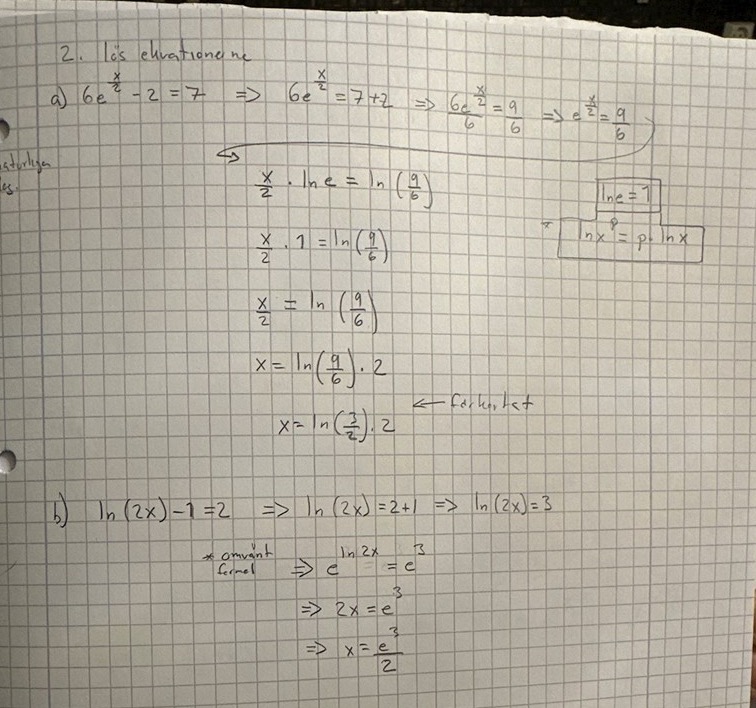 2. lös ekvationerna
a) 6e^(x/2) - 2 = 7 => 6e^(x/2) = 7+2 => 6e^(x/2)/6 = 9/6 => e^(x/2) = 9/6
x/2 · ln e = ln(9/6)
ln e = 1
* ln x^p = p · ln x
x/2 · 1 = ln(9/6)
x/2 = ln(9/6)
x = ln(9/6) · 2
x = ln(3/2) · 2 ← förkortat
b) ln(2x) - 1 = 2 => ln(2x) = 2+1 => ln(2x) = 3
* omvänt formel => e^(ln 2x) = e^3
=> 2x = e^3
=> x = e^3/2